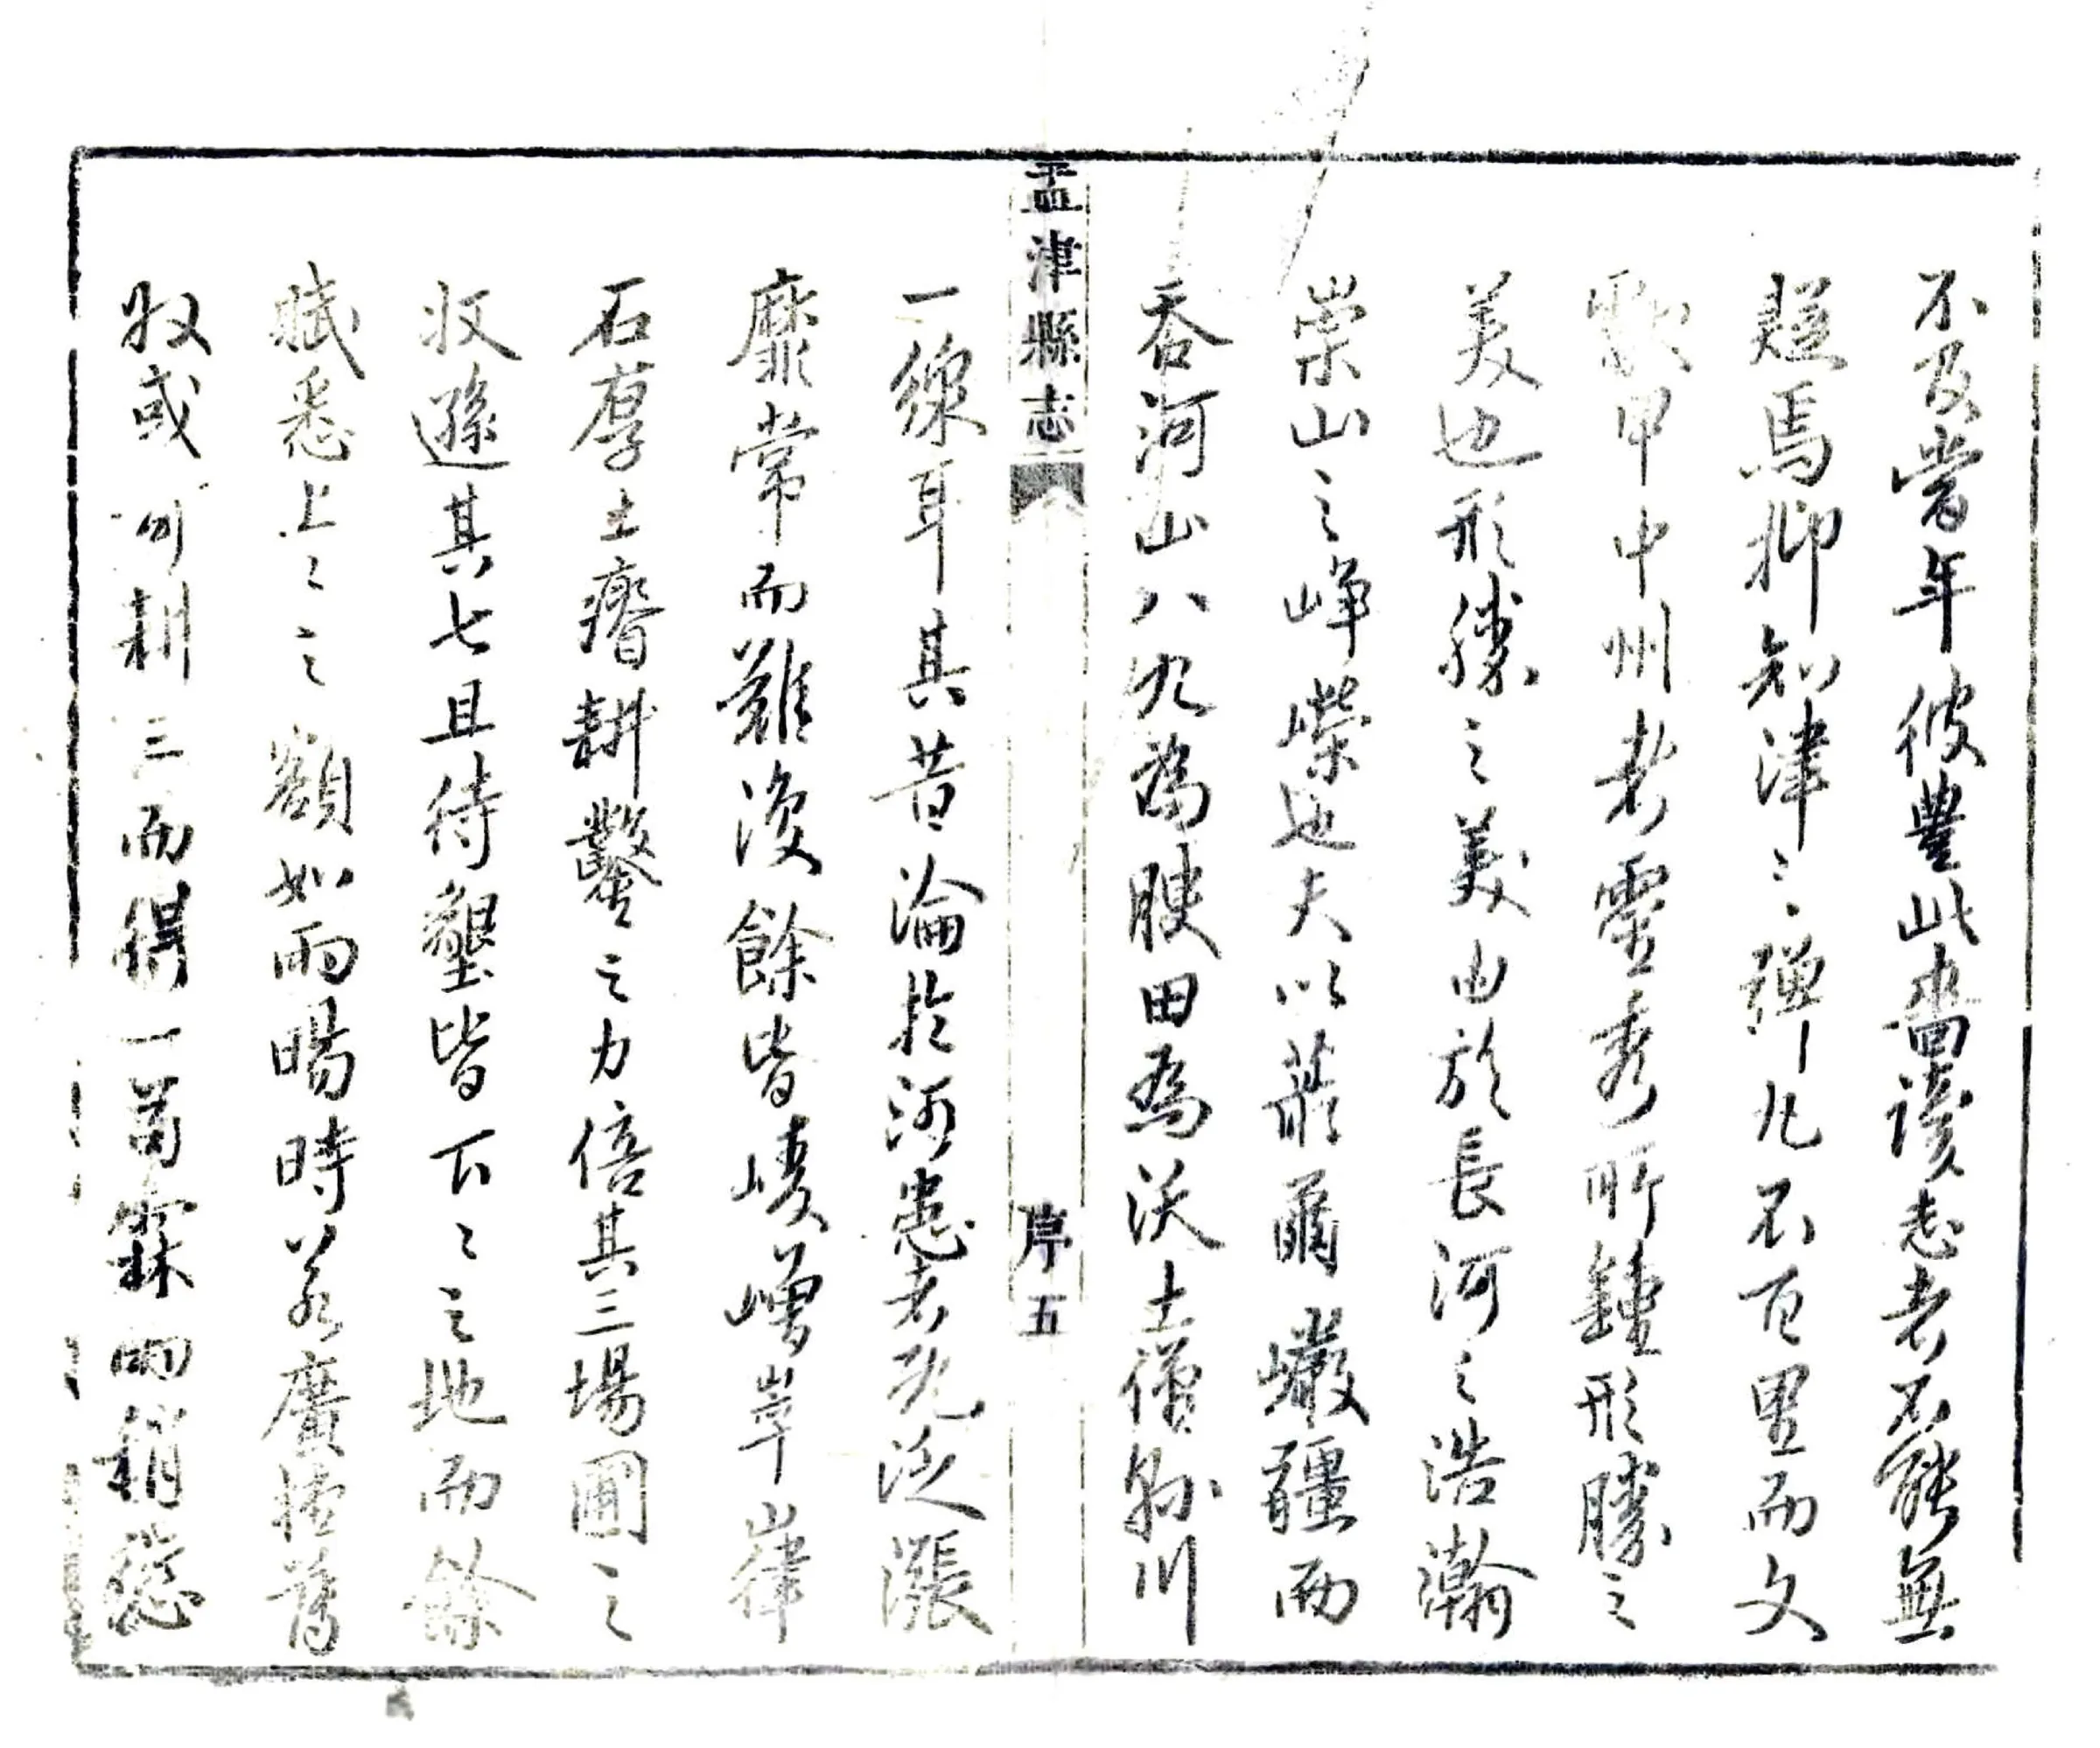 不及當年彼豐此嗇讀志者不能無
疑焉抑知津之彈丸不百里而文
獻甲中州者靈秀所鍾形勝之
美也形勝之美由於長河之浩瀚
崇山之崢嶸也夫以蕞爾巖疆而
吞河山八九為腴田為沃土僅如川
孟津縣志
序五
一線耳其昔淪於河患者既泛漲
靡常而難復餘皆崚嶒崒嵂
石厚土瘠耕鑿之力倍其三場圃之
收遜其七且待墾皆下之之地而餘
賦悉上之之額如雨暘時若廣種薄
收或 耕三而得一苗霖雨稍愆